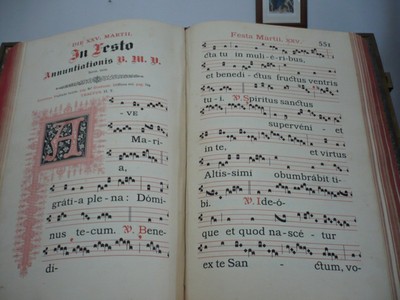 DIE XXV. MARTII.
In Festo
Annuntiationis B. M. V.
A
-VE
Mari-
a,
grátia plena: Dómi-
nus tecum. ℣. Bene-
di-
Festa Martii. XXV.
cta tu in muli-eribus,
et benedi-ctus fructus ventris
tu-i. ℣. Spiritus sanctus
supervéni-et
in te, et virtus
Altissimi obumbrábit ti-
bi. ℣. Ide-ó-
que et quod nascé-tur
ex te San-ctum, vo-